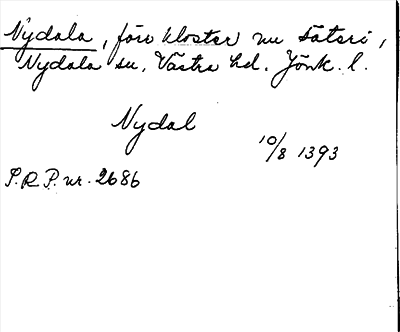 Nydala, före kloster nu säteri,
Nydala sn. Västra hd. Jönk. l.
Nydal
10/8 1393
S.R.P. nr. 2686